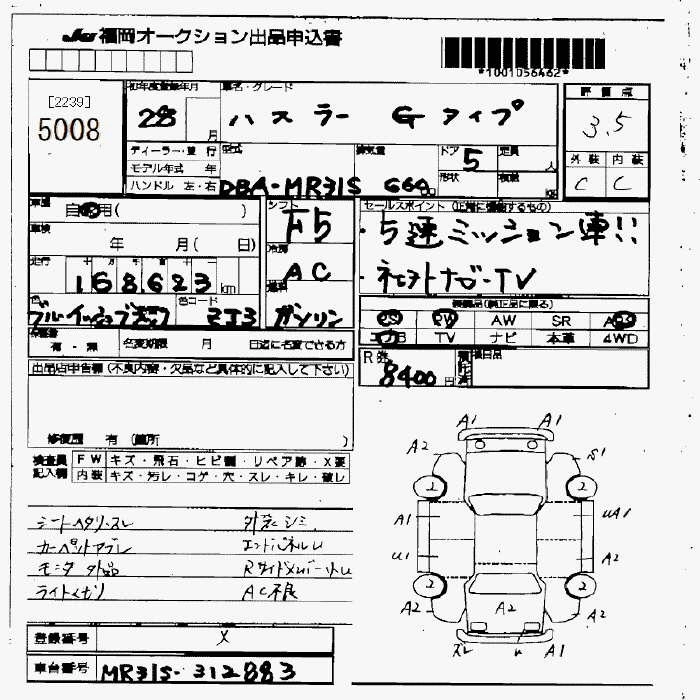 JAS 福岡オークション出品申込書
*1001056462*
[2239]
5008
初年度登録年月
28 月
車名・グレード
ハスラー G タイプ
評価点
3.5
ディーラー・並行
モデル年式 年
ハンドル 左・右
型式
DBA-MR31S
排気量
660cc
ドア 5
形状
定員 人
積載 kg
外装 内装
C C
車歴
自家用( )
車検
年 月( 日)
走行 十 万 千 百 十 一
168,623 km
シフト
F5
冷房
AC
燃料
ガソリン
色
ブルーイッシュブラック
色コード
ZJ3
セールスポイント (正常に稼働するもの)
・5速ミッション車!!
・社外ナビ・TV
装備品(純正品に限る)
PS PW AW SR ABS
エアB TV ナビ 本革 4WD
保証書
有・無
名変期限 月 日迄に名変できる方
R券
8400円
後日品
出品店申告欄 (不良内容・欠品など具体的に記入して下さい)
修復歴 有 (箇所 )
検査員記入欄
FW キズ・飛石・ヒビ割・リペア跡・X要
内装 キズ・汚レ・コゲ・穴・スレ・キレ・破レ
シートヘタリ・スレ 外装シミ
カーペットヤブレ エンドパネルU
モニタ外品 RサイドメンバーホU
ライトメガリ AC不良
登録番号 X
車台番号 MR31S-312883
A1 A1
A2 S1
2 2
A1 UA1
U1 A2
2 2
A2 A2 A2
スレ U A1